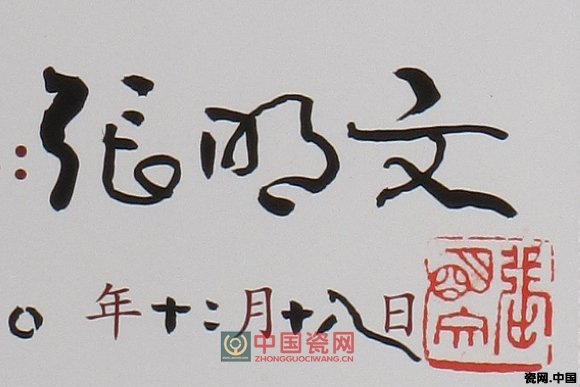 ：張明文
〇年十二月十八日
中国瓷网
ZHONGGUOCIWANG.CN
張明文
瓷网.中国